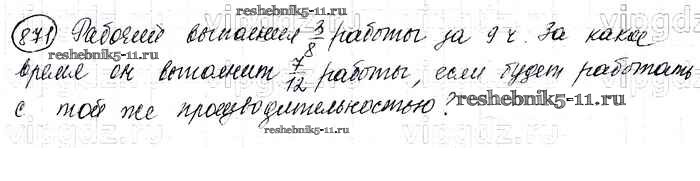 871 Рабочий выполнил 3/8 работы за 9 ч. За какое
время он выполнит 7/12 работы, если будет работать
reshebnik5-11.ru
с той же производительностью?
reshebnik5-11.ru
vipgdz.ru